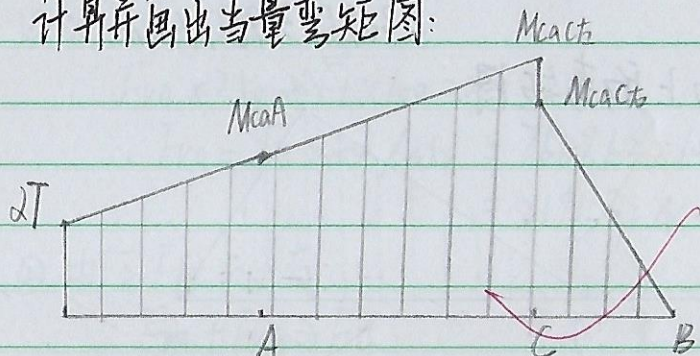 计算并画出当量弯矩图:
McaC左
McaC右
McaA
αT
A
C
B